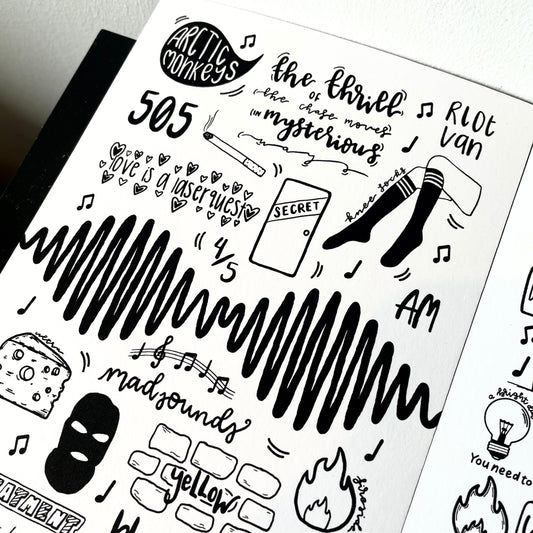 ARCTIC
MONKEYS
the thrill
of
the chase moves
(in
mysterious
ways
505
RIOT
Van
love is a laserquest
SECRET
knee socks
4/5
AM
mad sounds
YELLOW
a bright
You need to